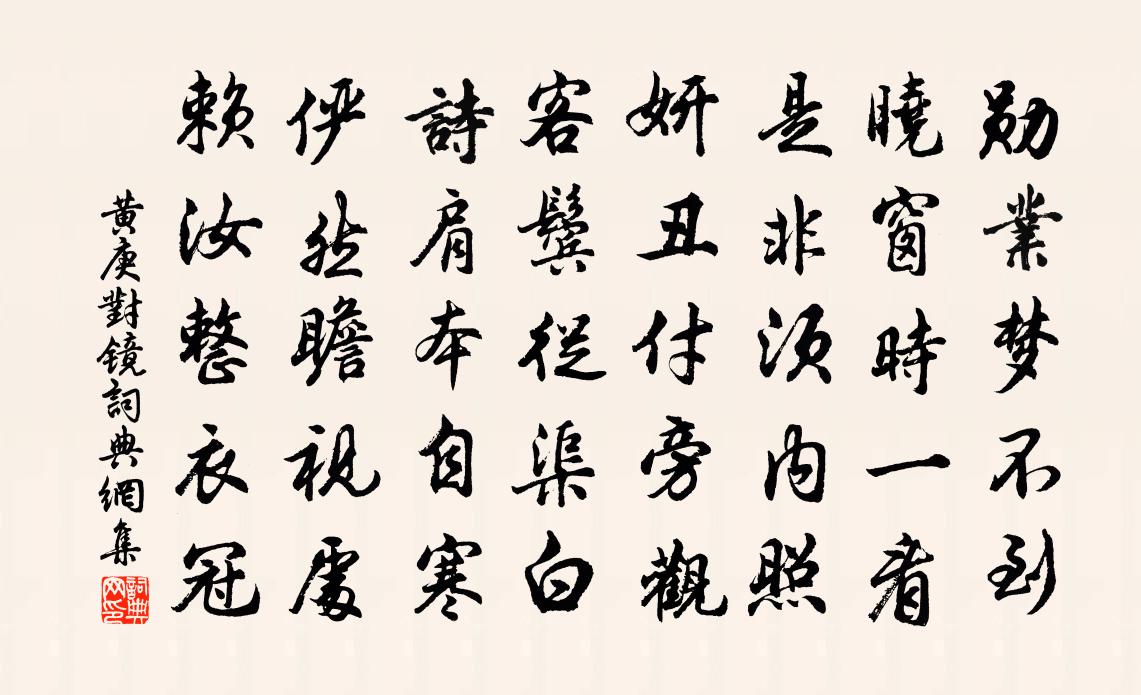 勋業梦不到
曉窗時一看
是非须内照
妍丑付旁觀
客鬓從渠白
詩肩本自寒
俨然瞻視處
赖汝整衣冠
黄庚對镜詞典網集
詞典网印